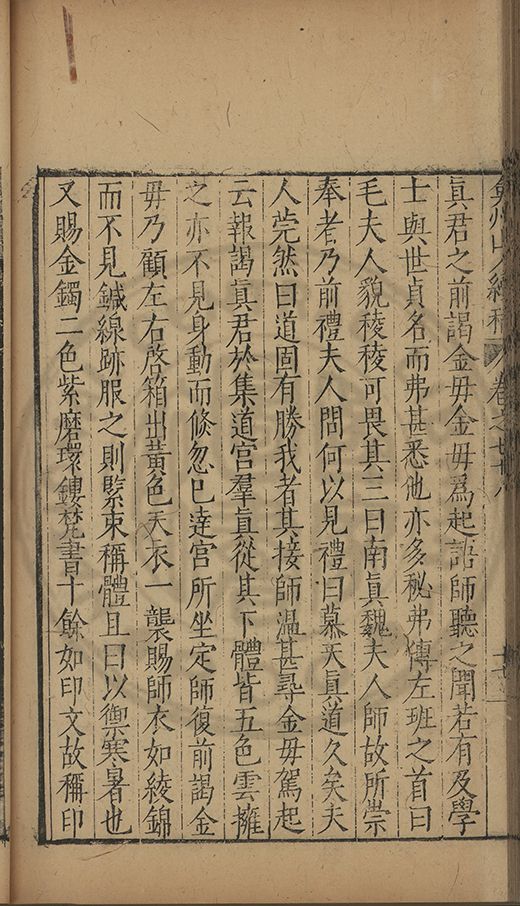 弇州山人續稿 卷之七十八 十七
眞君之前謁金毋金毋爲起語師聽之聞若有及學
士與世貞名而弗甚悉他亦多秘弗傳左班之首曰
毛夫人貌稜稜可畏其三曰南眞魏夫人師故所崇
奉者乃前禮夫人問何以見禮曰慕天眞道久矣夫
人莞然曰道固有勝我者其接師温甚尋金毋駕起
云報謁眞君於集道宮羣眞從其下體皆五色雲擁
之亦不見身動而倏忽已達宮所坐定師復前謁金
毋乃顧左右啓箱出黃色天衣一襲賜師衣如綾錦
而不見鍼線跡服之則緊束稱體且曰以禦寒暑也
又賜金鐲二色紫磨環鏤梵書十餘如印文故稱印